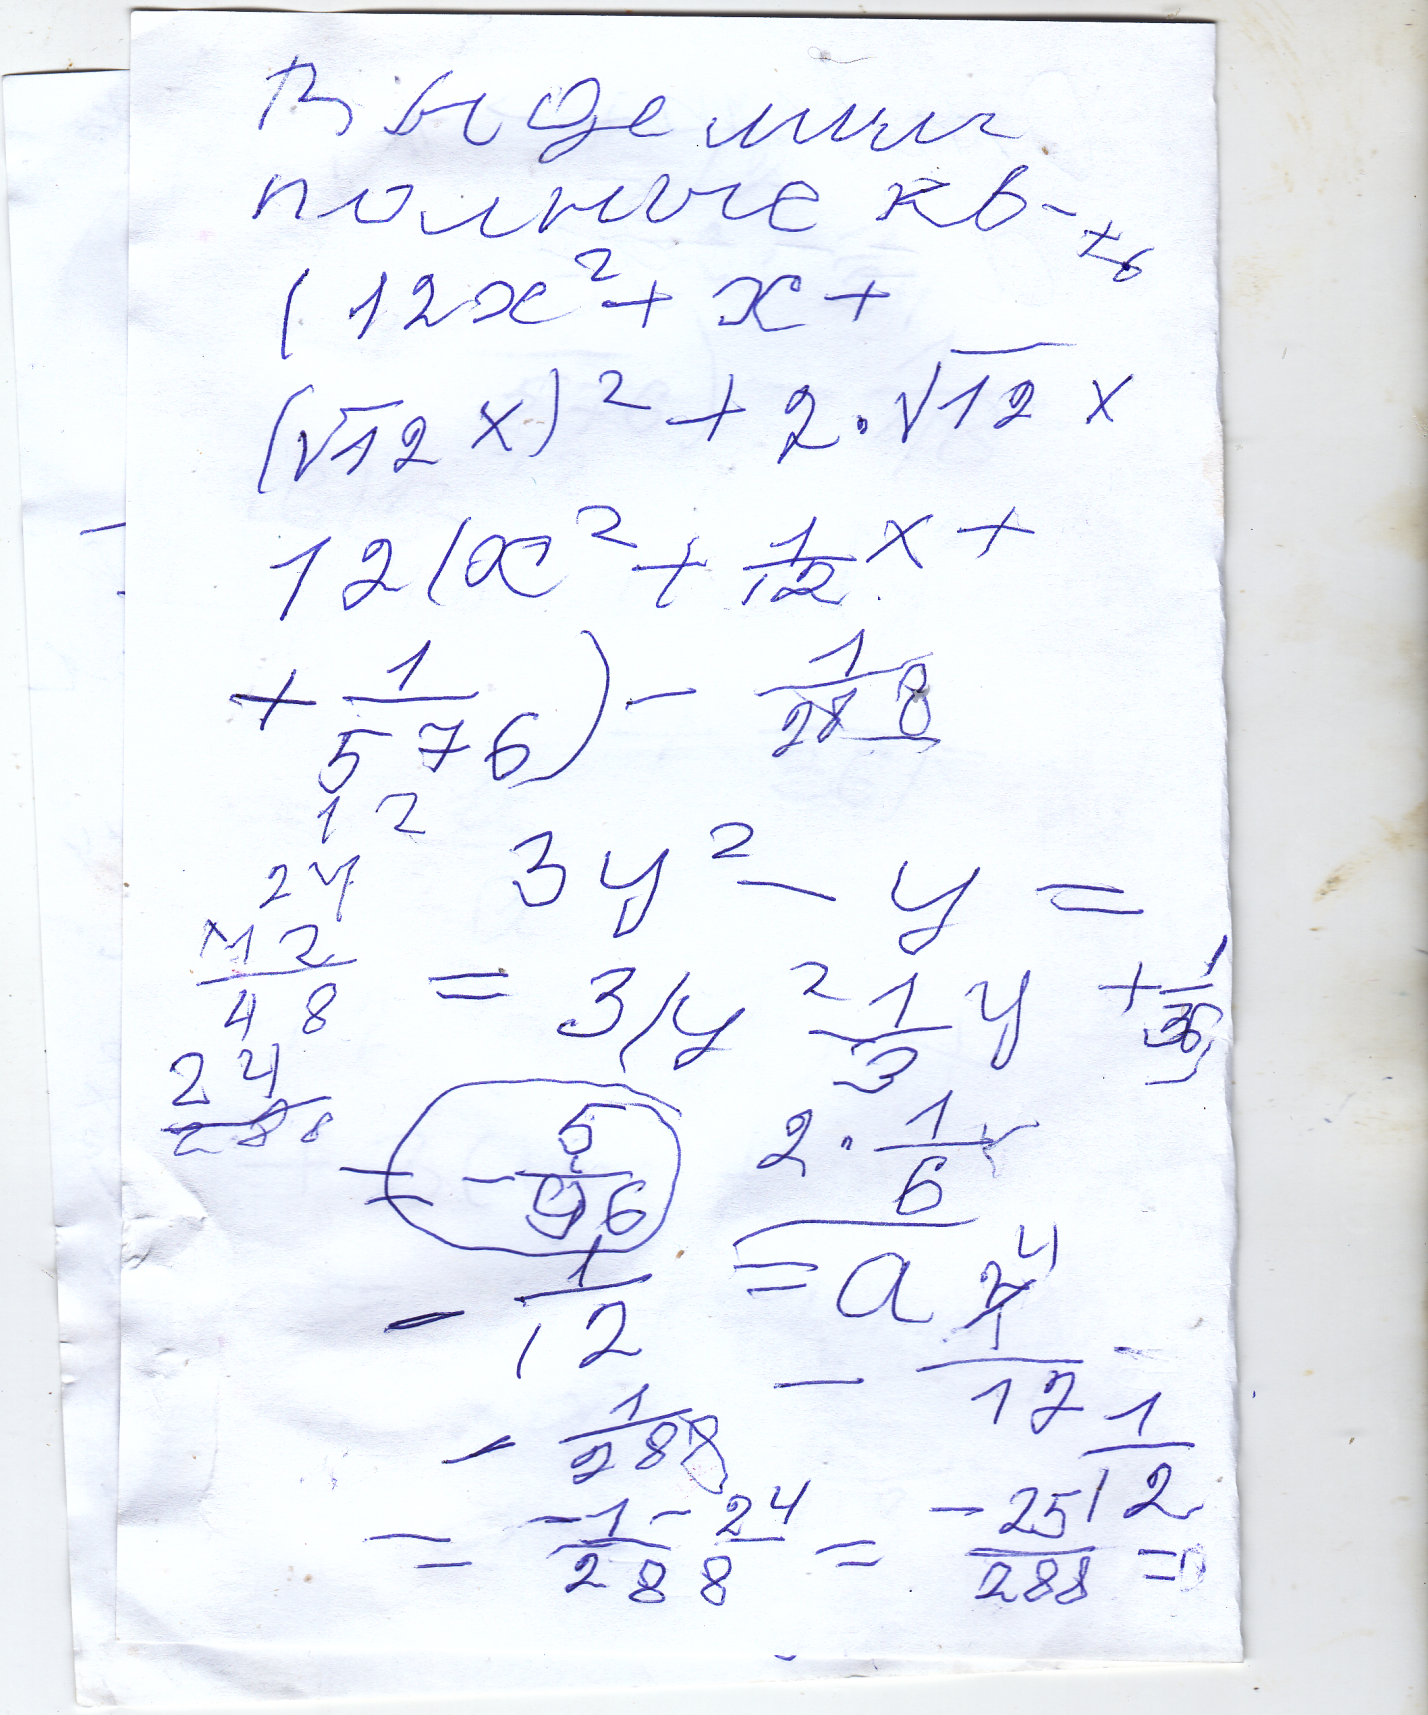 Выделим
полные кв-
(12x² + x +
(√12 x)² + 2·√12 x
12(x² + 1/12 x +
+ 1/576) - 1/288
12
24
×12
48
24
288
3y² - y =
= 3(y² 1/3 y + 1/36)
2· 1/6
= -5/96
- 1/12
= a
- 4/12 - 1/12
- 1/288
= -1-24/288 = -25/288 =